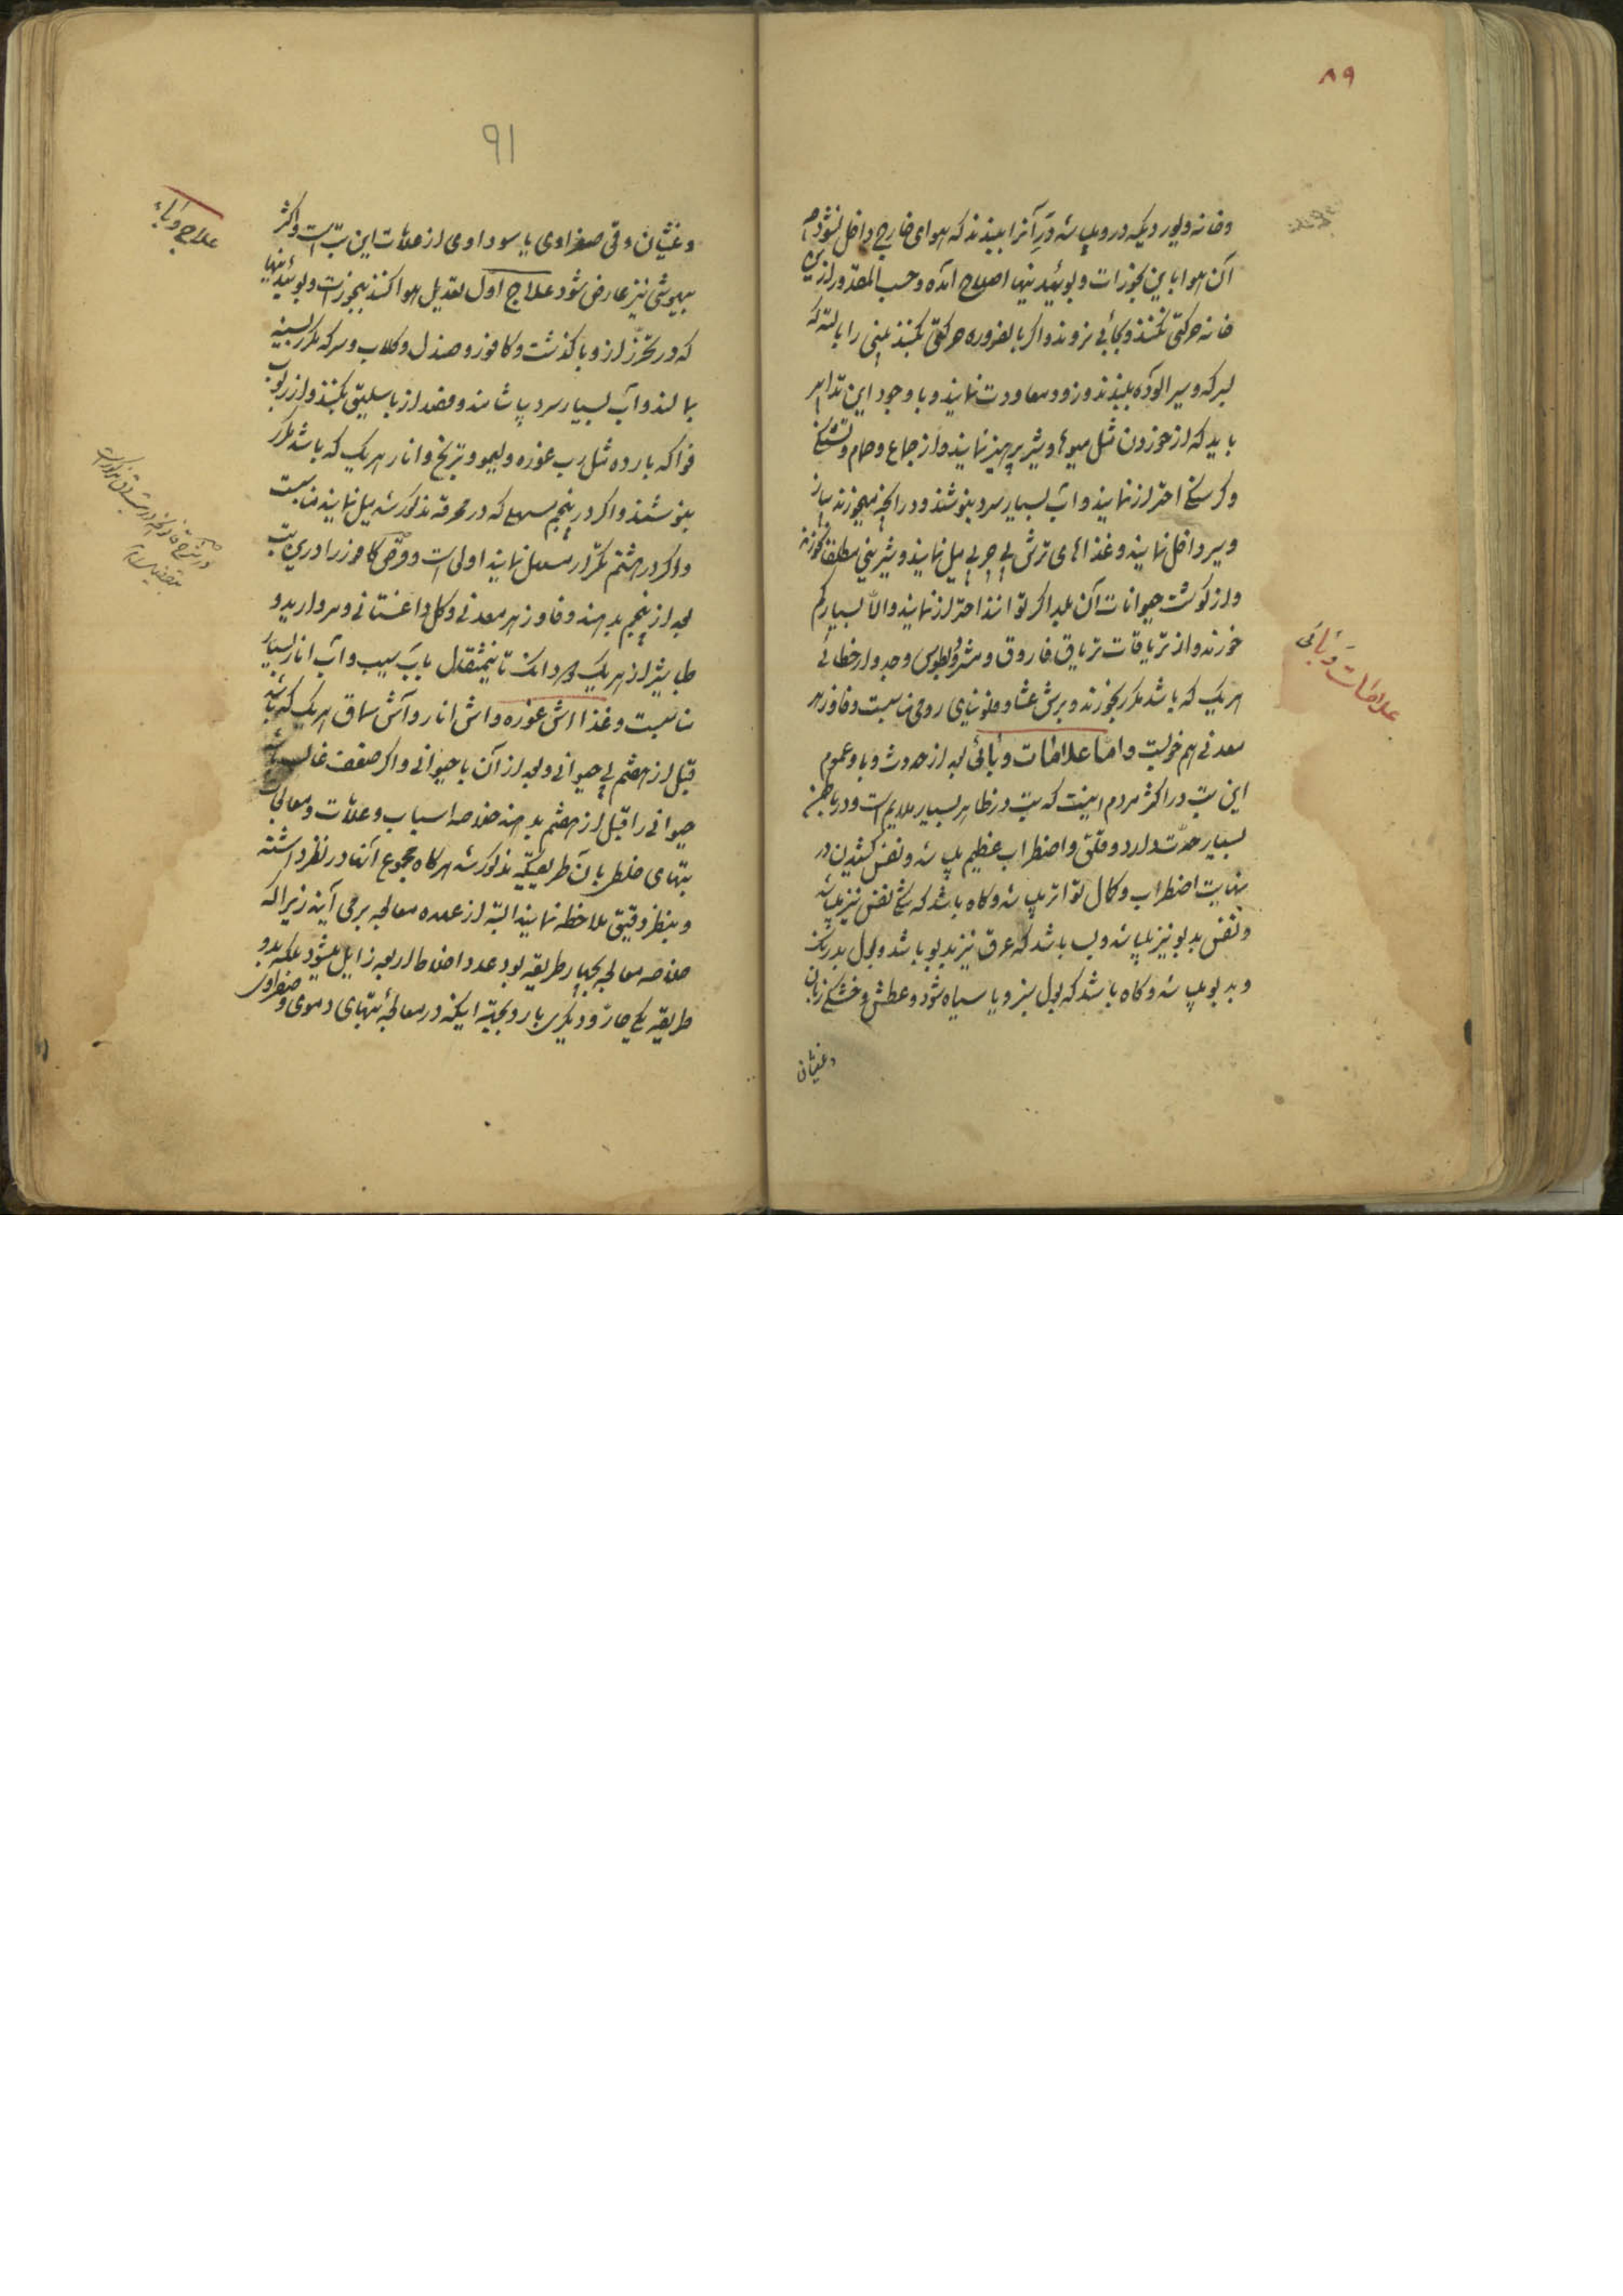 ۸۹
و خانه و پور دیکه در و باشد درِ آنرا ببندند که هوای خارج داخل نشود
آن هوا باین بخورات و بوئیدنیها اصلاح آمده و حسب المقدور ازین
خانه حرکتی نکنند و بجائی نروند و اکر بالضروره حرکتی بکنند بینی را بالته که
بسرکه و سیر آلوده ببندند و زود معاودت نمایند و با وجود این تدابیر
باید که از خوردن مثل میوها و شیر پرهیز نمایند و از جماع و حمام و تشنکی
و کرسنکی احتراز نمایند و آب بسیار سرد بنوشند و در آنچه میخورند پیاز
و سیر داخل نمایند و غذاهای ترش بی چربی میل نمایند و شیرینی مطلقا نخورند
و از کوشت حیوانات آن بلد اکر توانند احتراز نمایند و الّا بسیار کم
خورند و از تریاقات تریاق فاروق و مثرودیطوس و جدوار خطائی
هریک که باشد مکرر بخورند و برشعثا و فلونیای رومی مناسبت و فادزهر
معدنی هم خوبست و امّا علامات وبائی بعد از حدوث وبا و عموم
این تب در اکثر مردم اینست که تب در ظاهر بسیار ملایم است و در باطن
بسیار حدّت دارد و قلق و اضطراب عظیم باشد و نفس کشیدن در
نهایت اضطراب و کمال تواتر باشد و کاه باشد که تنکی نفس نیز باشد
و نفس بدبو نیز باشد و بسا باشد که عرق نیز بدبو باشد و بول بدرنک
و بدبو باشد و کاه باشد که بول سبز و یا سیاه شود و عطش و خشکی زبان
و غثیان
علامات وبائی
91
و غثیان و قی صفراوی یا سوداوی از علامات این تب است و اکثر
بیهوشی نیز عارض شود علاج اول تعدیل هوا کنند ببخورات و بوئیدنیها
که در تحرّز از وبا کذشت و کافور و صندل و کلاب و سرکه مکرر بسینه
بمالند و آب بسیار سرد بپاشانند و فصد از باسلیق بکنند و از ربوب
فواکه بارده مثل رب غوره و لیمو و تریخ و انار هریک که باشد مکرر
بنوشند و اکر در پنجم مسهلی که در محرقه مذکور شد میل نمایند مناسبت
و اکر در هشتم تکرار مسهل نمایند اولی است و قرص کافور را درین تب
بعد از پنجم بدهند و فادزهر معدنی و کل داغستانی و مروارید و
طباشیر از هریک دو دانک تا نیمثقال بآب سیب و آب انار بسیار
مناسبت و غذا اش غوره و اش انار و آش سماق هریک که باشد
قبل از هضم بی حیوانی و بعد از آن با حیوانی و اکر ضعف غالب باشد
حیوانی را قبل از هضم بدهند خلاصه اسباب و علامات و معالجات
تبهای خلطی بآن طریقیکه مذکور شد هرکاه مجموع آنها در نظر داشته
و بنظر دقیق ملاحظه نمایند البته از عهده معالجه برمی آیند زیرا که
خلاصه معالجه بچهار طریقه بود عدد اخلاط اربعه زایل میشود بلکه بدو
طریقه یکی حارّ و دیکری بارد بجهة اینکه در معالجهٔ تبهای دموی و صفراوی
علاج وباء